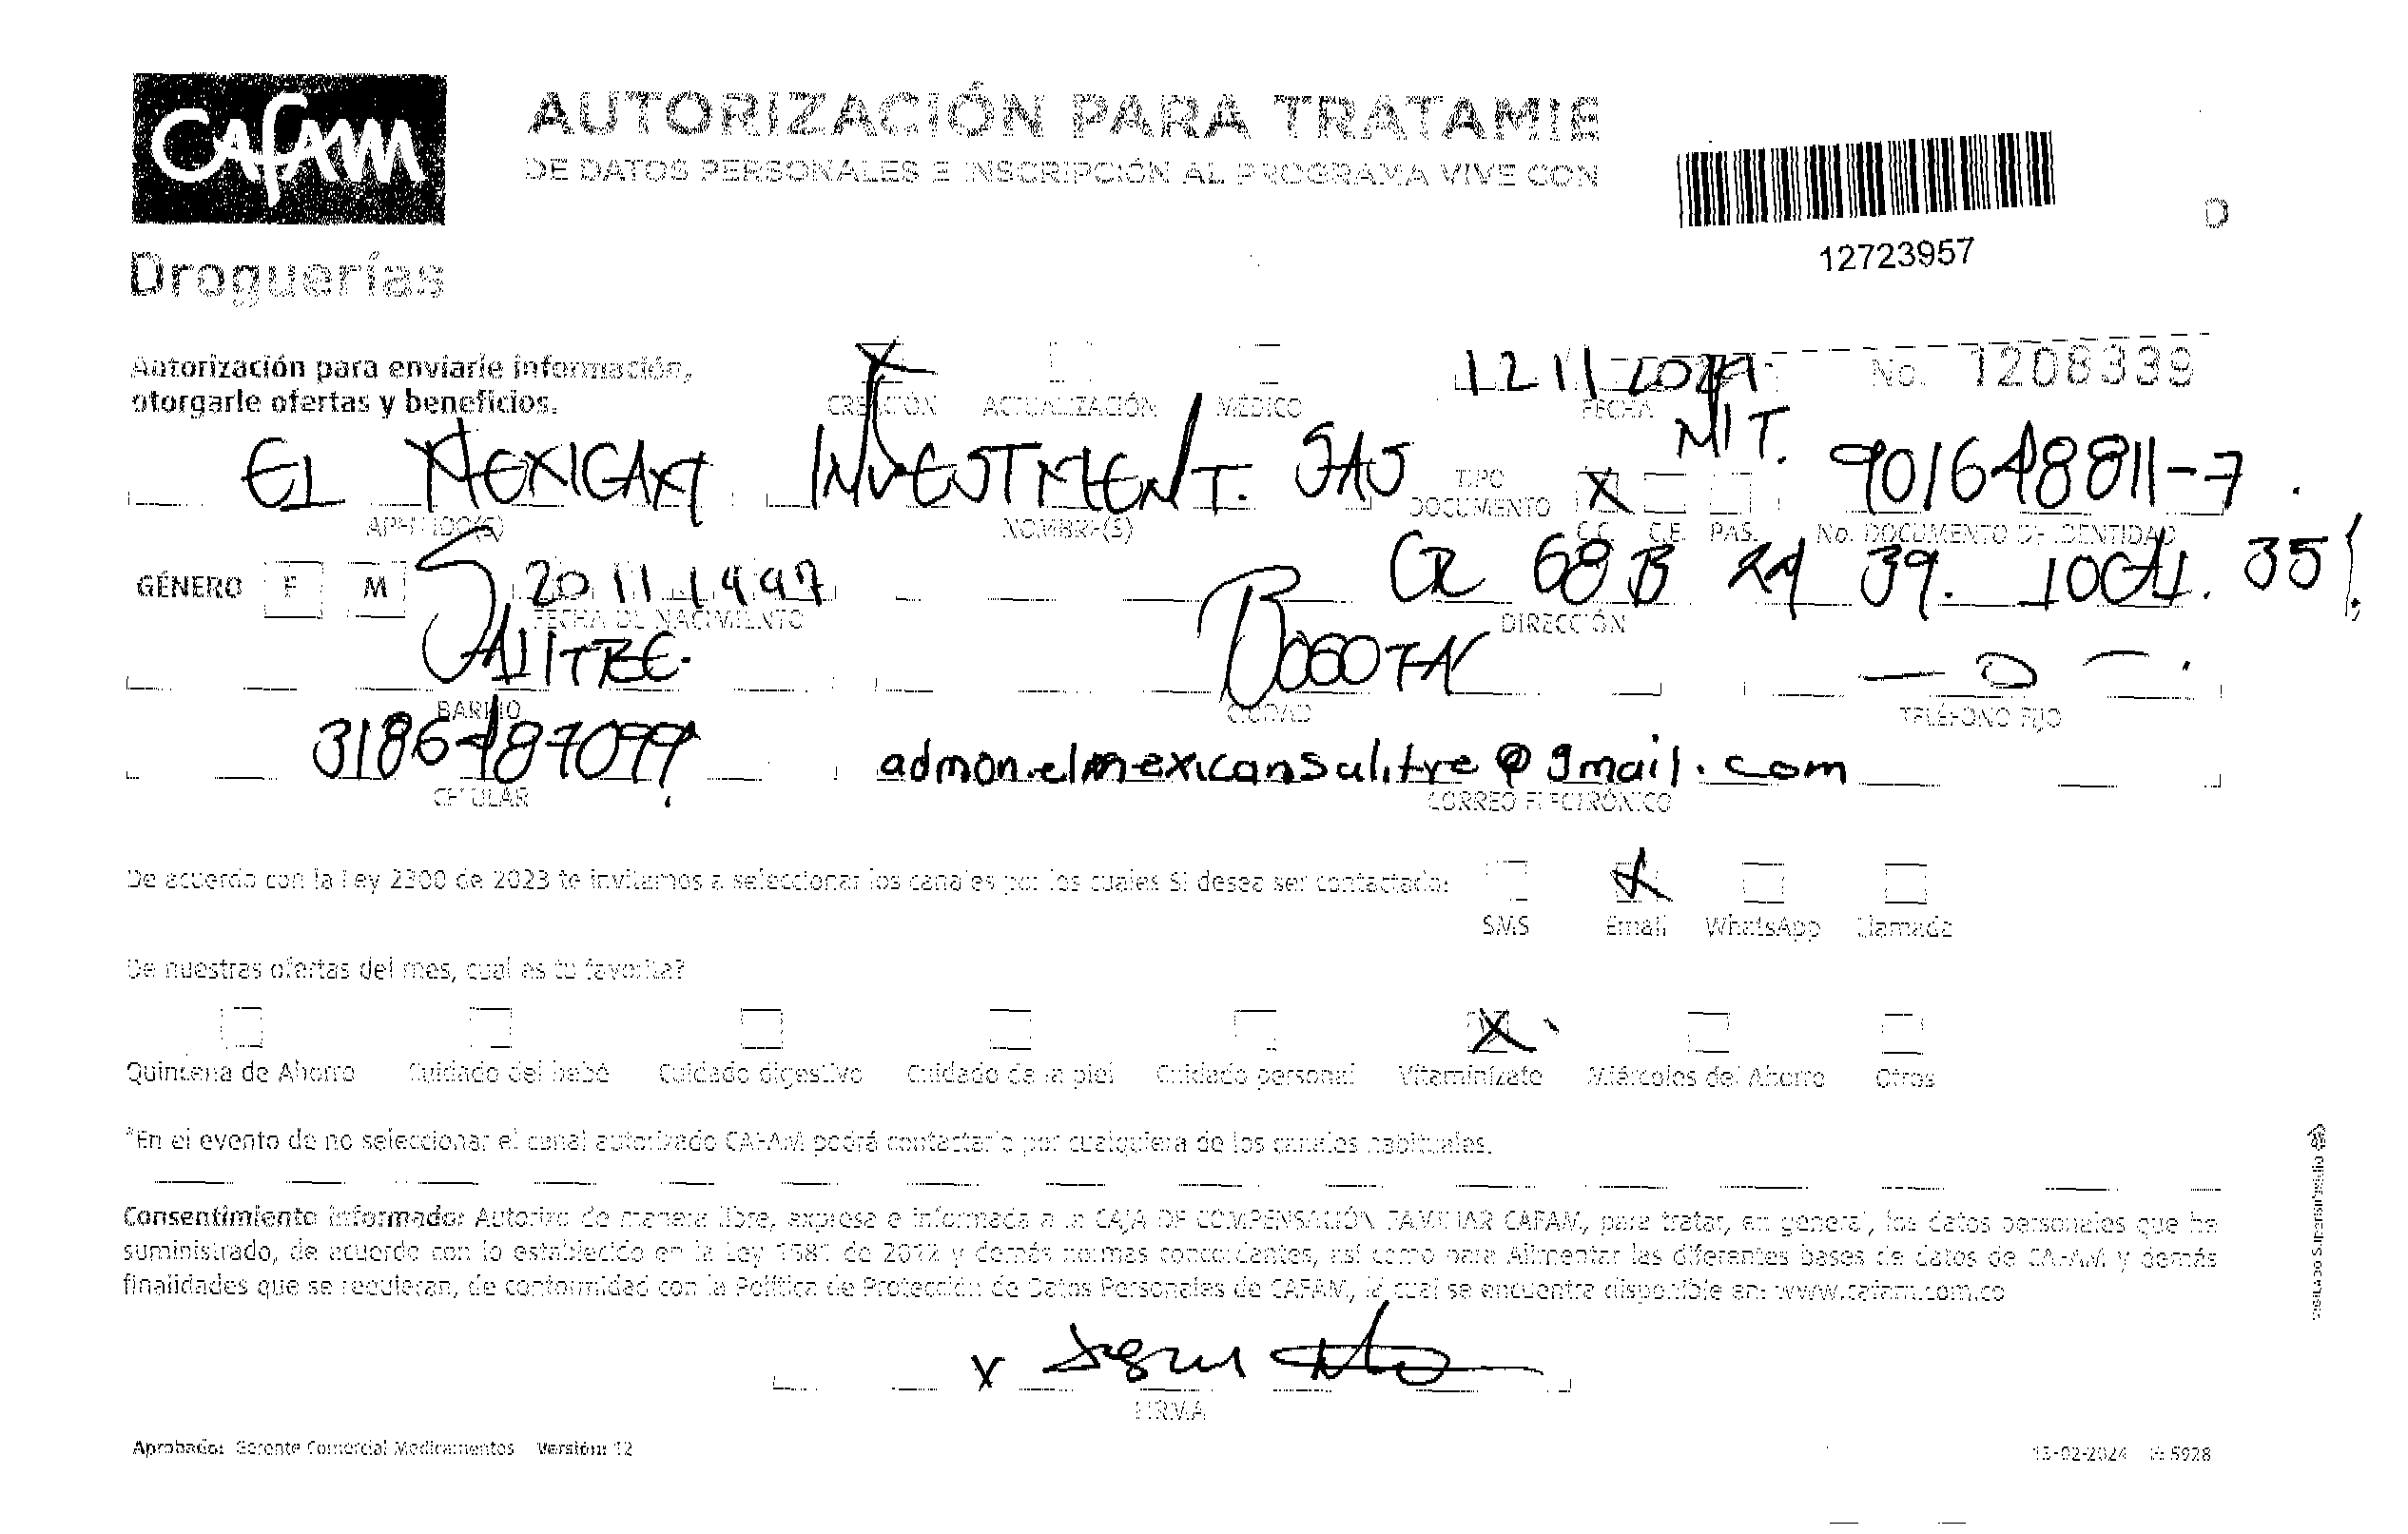 Cafam
AUTORIZACIÓN PARA TRATAMIE
DE DATOS PERSONALES E INSCRIPCIÓN AL PROGRAMA VIVE CON
D
12723957
Droguerías
Autorización para enviarle información,
otorgarle ofertas y beneficios.
X
CREACIÓN ACTUALIZACIÓN MÉDICO
12 11
FECHA
No. 1208339
EL MEXICAN INVESTMENT. SAS
APELLIDO(S) NOMBRE(S)
TIPO DOCUMENTO X C.C. C.E. PAS.
NIT. 901648811-7.
No. DOCUMENTO DE IDENTIDAD
GÉNERO F M
20 11 1997
FECHA DE NACIMIENTO
CR 68 B 24 39. LOCAL. 35
DIRECCIÓN
SALITRE.
BARRIO
BOGOTA
CIUDAD
— 0 — .
TELÉFONO FIJO
3186487099
CELULAR
admon.elmexicansalitre@gmail.com
CORREO ELECTRÓNICO
De acuerdo con la Ley 2300 de 2023 te invitamos a seleccionar los canales por los cuales SI desea ser contactado:
X
SMS Email WhatsApp Llamada
De nuestras ofertas del mes, cual es tu favorita?
X
Quincena de Ahorro Cuidado del bebé Cuidado digestivo Cuidado de la piel Cuidado personal Vitaminízate Miércoles del Ahorro Otros
*En el evento de no seleccionar el canal autorizado CAFAM podrá contactarlo por cualquiera de los canales habituales.
Consentimiento informado: Autorizo de manera libre, expresa e informada a la CAJA DE COMPENSACIÓN FAMILIAR CAFAM, para tratar, en general, los datos personales que he
suministrado, de acuerdo con lo establecido en la Ley 1581 de 2012 y demás normas concordantes, así como para Alimentar las diferentes bases de datos de CAFAM y demás
finalidades que se requieran, de conformidad con la Política de Protección de Datos Personales de CAFAM, la cual se encuentra disponible en: www.cafam.com.co
VIGILADO Supersubsidio
X
FIRMA
Aprobado: Gerente Comercial Medicamentos Versión: 12
13-02-2024 5928